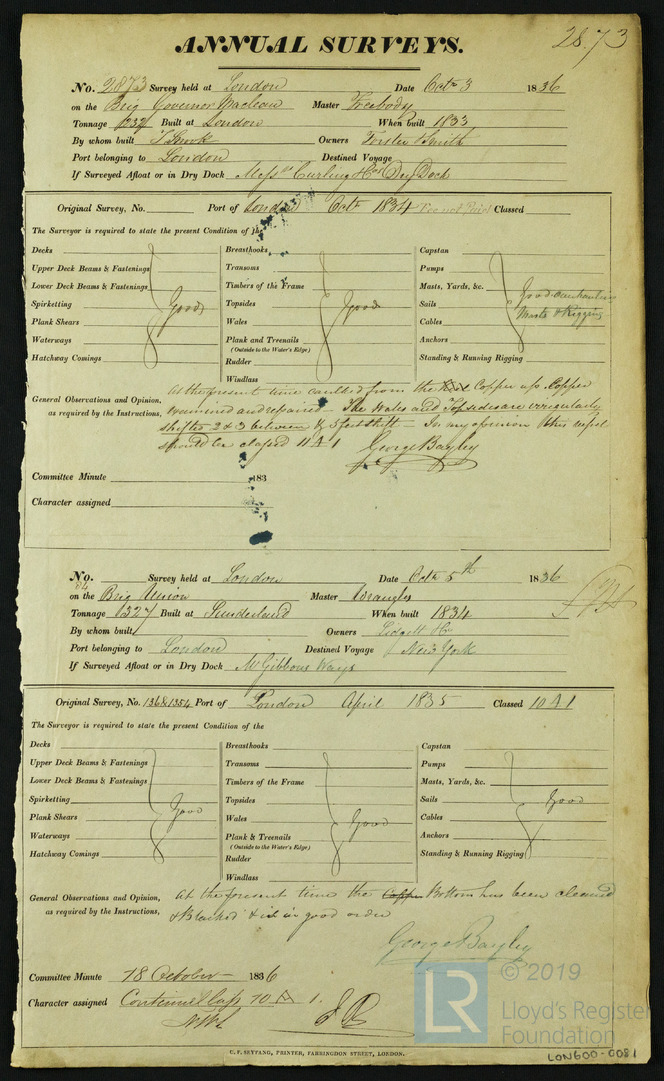 28.73
ANNUAL SURVEYS.
No. 2873 Survey held at London Date Octr 3 1836
on the Brig Governor Maclean Master Freebody
Tonnage 132/ Built at London When built 1833
By whom built T Brook Owners Forster & Smith
Port belonging to London Destined Voyage
If Surveyed Afloat or in Dry Dock Messrs Curling & Co Dry Dock
Original Survey, No. Port of London Octr 1834 Classed
The Surveyor is required to state the present Condition of the
Decks Breasthooks Capstan
Upper Deck Beams & Fastenings Transoms Pumps
Lower Deck Beams & Fastenings Timbers of the Frame Masts, Yards, &c. Good overhauling
Spirketting Good Topsides Good Sails Masts & Rigging
Plank Shears Wales Cables
Waterways Plank and Treenails Anchors
(Outside to the Water's Edge)
Hatchway Comings Rudder Standing & Running Rigging
Windlass
General Observations and Opinion, At the present time caulked from the Copper up. Copper
as required by the Instructions, examined and repaired – The Wales and Topsides are irregularly
shifted 2 & 3 between & 5 feet shift – In my opinion this vessel
should be classed 11 A 1 George Bayley
Committee Minute 183
Character assigned
No. Survey held at London Date Octr 5th 1836
on the Brig Union Master Wrangles
Tonnage 132/ Built at Sunderland When built 1834
By whom built Owners Lidgett & Co
Port belonging to London Destined Voyage New York
If Surveyed Afloat or in Dry Dock Mr Gibbons Ways
Original Survey, No. 1368 1354 Port of London April 1835 Classed 10 A 1
The Surveyor is required to state the present Condition of the
Decks Breasthooks Capstan
Upper Deck Beams & Fastenings Transoms Pumps
Lower Deck Beams & Fastenings Timbers of the Frame Masts, Yards, &c.
Spirketting Good Topsides Sails Good
Plank Shears Wales Good Cables
Waterways Plank & Treenails Anchors
(Outside to the Water's Edge)
Hatchway Comings Rudder Standing & Running Rigging
Windlass
General Observations and Opinion, At the present time the Copper Bottom has been cleaned
as required by the Instructions, & Blacked & is in good order
George Bayley
Committee Minute 18 October 1836
Character assigned Continued Class 10 A 1.
LR
© 2019
Lloyd's Register
Foundation
C. F. SEYFANG, PRINTER, FARRINGDON STREET, LONDON.
LON600-0081